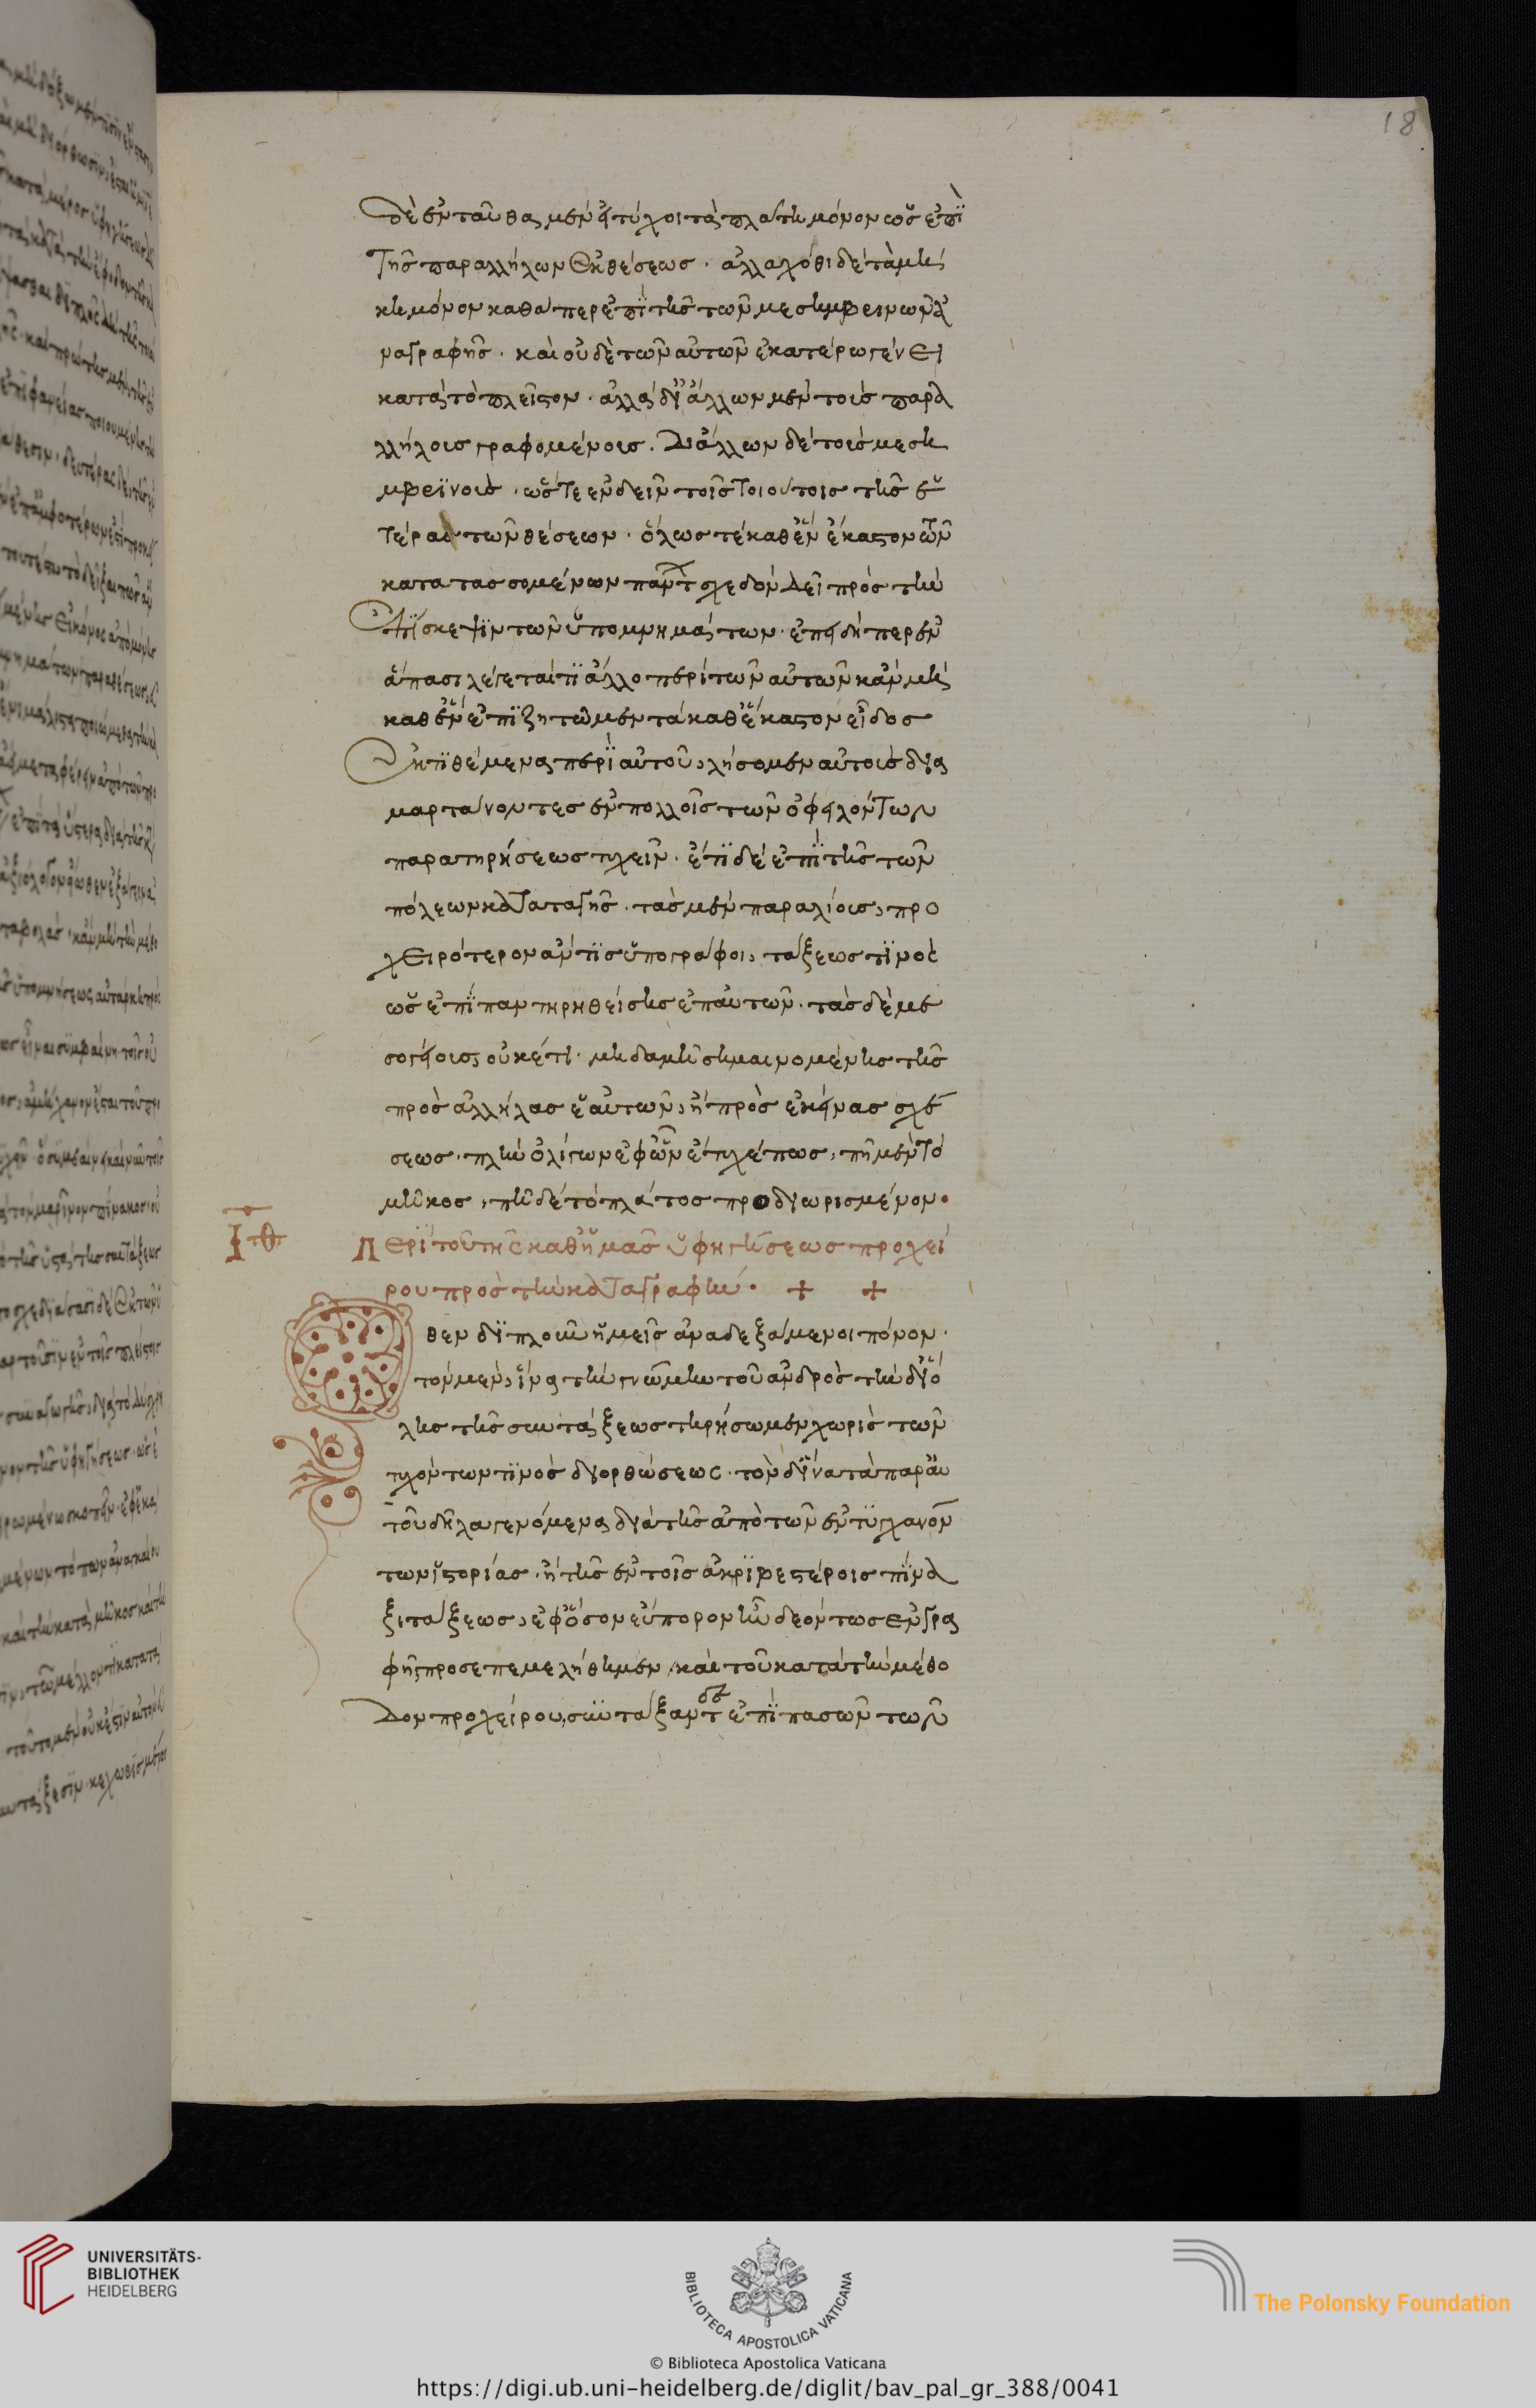 18
δὲ ἐνταῦθα μὲν εἰ τύχοι τὰ πλάτη μόνον ὡς ἐπῒ
τῆς παραλλήλων ἐκθέσεως · ἀλλαχόθι δὲ τὰ μή
κη μόνον καθάπερ ἐπῒ τῆς τῶν μεσημβρινῶν ἀ
ναγραφῆς · καὶ οὐδὲ τῶν αὐτῶν ἑκατέρω γένει
κατὰ τὸ πλεῖστον · ἀλλὰ δι᾽ ἄλλων μὲν τοῖς παρα
λλήλοις γραφομένοις · δι᾽ ἄλλων δὲ τοῖς μεση
μβρϊνοῖς · ὥστε ἐνδεῖν τοῖς τοιούτοις τῆς ἑ
τέρας τῶν θέσεων · ὅλως τὲ καθ᾽ ἓν ἕκαστον τῶν
κατατασσομένων πάντ σχεδὸν δεῖ πρὸς τὴν
ἐπΐσκεψϊν τῶν ὑπομνημάτων · ἐπειδήπερ ἐν
ἅπασι λέγεταί τϊ ἄλλο περὶ τῶν αὐτῶν κἂν μὴ
καθ᾽ ἓν ἐπϊζητῶμεν τὰ καθ᾽ ἕκαστον εἶδος
ἐκτϊθέμενα περῒ αὐτοῦ, λήσομεν αὐτοὺς δια
μαρτάνοντες ἐν πολλοῖς τῶν ὀφειλόντων
παρατηρήσεως τυχεῖν · ἔτϊ δὲ ἐπῒ τῆς τῶν
πόλεων καταταγῆς · τὰς μὲν παραλίοις, προ
χειρότερον ἄν τϊς ὑπογράφοι, τάξεως τϊνὸς
ὡς ἐπίπαν τηρηθείσης ἐπ᾽ αὐτῶν · τὰς δὲ με
σογείοις οὐκέτι · μηδαμῆ σημαινομένης τῆς
πρὸς ἀλλήλας ἑαυτῶν, ἢ πρὸς ἐκείνας σχέ
σεως · πλὴν ὀλίγων ἐφ᾽ ὧν ἔτυχέ πως, πῆ μὲν τὸ
μῆκος, πῆ δὲ τὸ πλάτος προδιωρισμένον ·
ιθ Περὶ τοῦ τῆς καθ᾽ ἡμᾶς ὑφηγήσεως προχεί
ρου πρὸς τὴν καταγραφήν · + +
Ὅθεν διπλοῦν ἡμεῖς ἀναδεξάμενοι πόνον ·
τὸν μὲν, ἵνα τὴν γνώμην τοῦ ἀνδρὸς τὴν δι᾽ ὅ
λης τῆς συντάξεως τηρήσωμεν χωρὶς τῶν
τυχόντων τϊνὸς διορθώσεως · τὸν δ᾽ ἵνα τὰ παρ᾽ αὐ
τοῦ δῆλα γενόμενα διὰ τῆς ἀπὸ τῶν ἐντϋγχανόν
των ἱστορίας · ἢ τῆς ἐν τοῖς ἀκρϊβεστέροις πΐνα
ξι τάξεως, ἐφ᾽ ὅσον εὔπορον ἦν δεόντως ἐνγρα
φῆ, προσεπεμελήθημεν καὶ τοῦ κατὰ τὴν μέθο
δον προχείρου, συντάξαντος ἐπῒ πασῶν τῶν
UNIVERSITÄTS-
BIBLIOTHEK
HEIDELBERG
BIBLIOTECA APOSTOLICA VATICANA
The Polonsky Foundation
© Biblioteca Apostolica Vaticana
https://digi.ub.uni-heidelberg.de/diglit/bav_pal_gr_388/0041